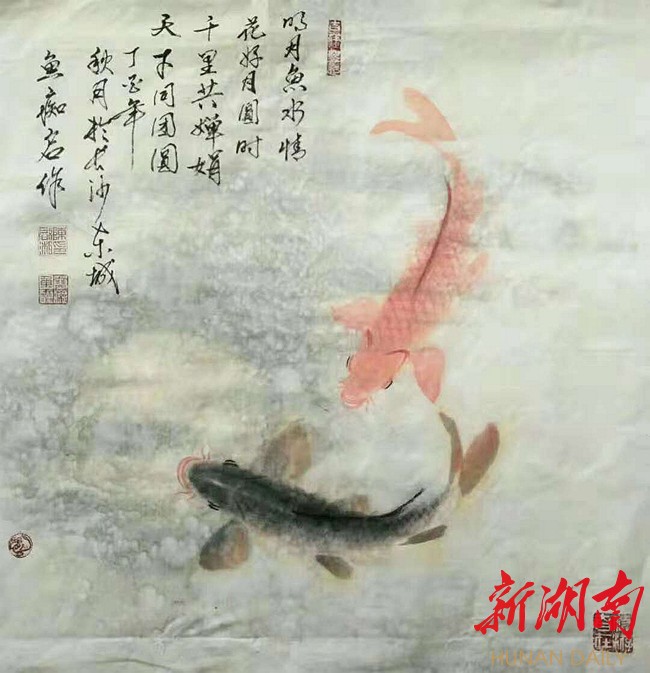 明月魚水情
花好月圓时
千里共嬋娟
天下同團圓
丁酉年
秋月於长沙东城
魚痴作
新湖南
HUNAN DAILY